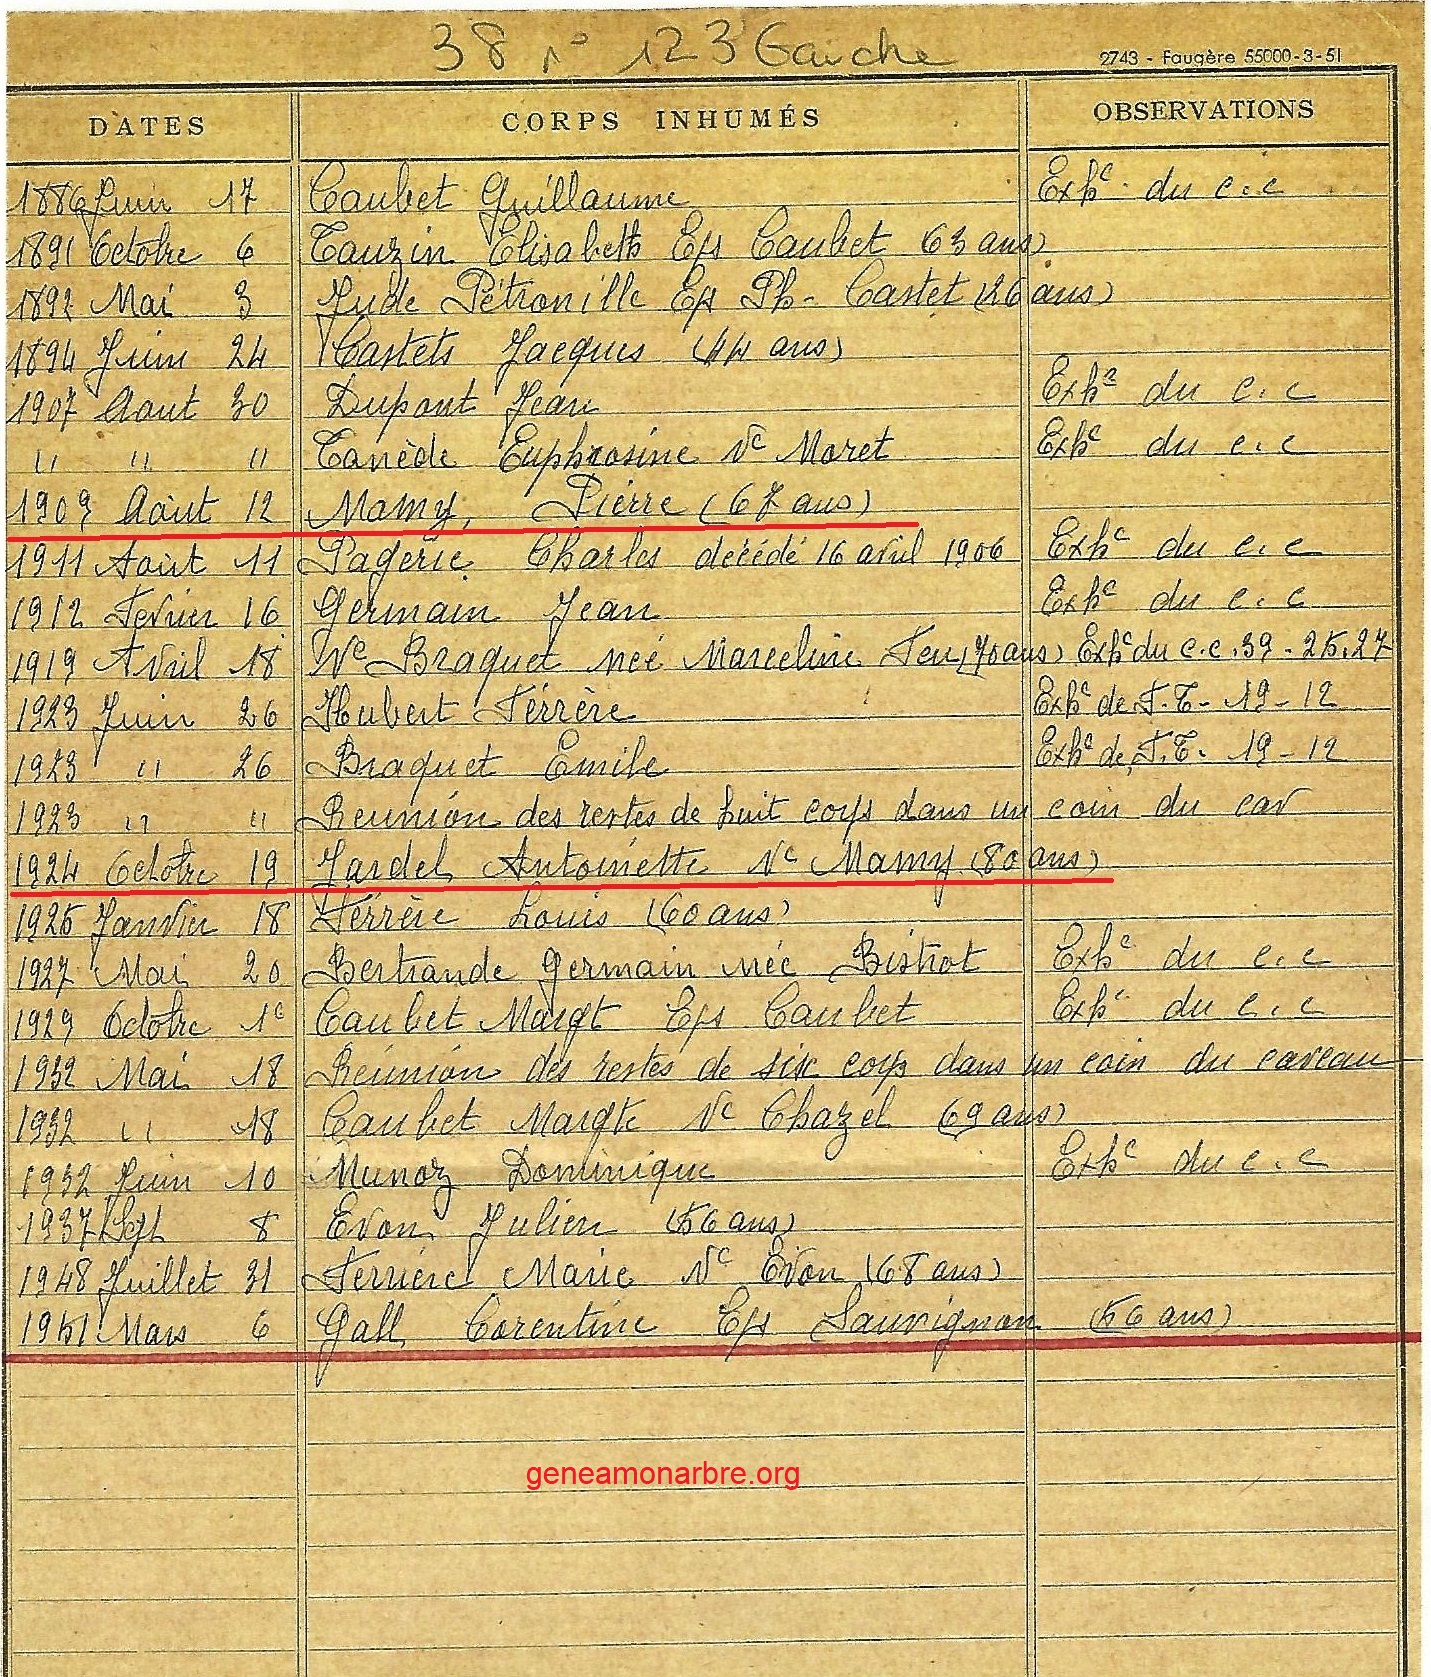 38 n° 123 Gauche
2743 - Faugère 55000-3-51
DATES CORPS INHUMÉS OBSERVATIONS
1886 Juin 17 Caubet Guillaume Exhᵉ du c.c
1891 Octobre 6 Tauzin Elisabeth Eps Caubet (63 ans)
1892 Mai 3 Jude Pétronille Eps Ph- Castet (26 ans)
1894 Juin 24 Castets Jacques (44 ans)
1907 Aout 30 Dupont Jean Exhᵉ du c.c
" " " Tanède Euphrosine Vᵉ Moret Exhᵉ du c.c
1909 Août 12 Mamy, Pierre (67 ans)
1911 Août 11 Pagerie Charles décédé 16 avril 1906 Exhᵉ du c.c
1912 Fevrier 16 Germain Jean Exhᵉ du c.c
1919 Avril 18 Vᵉ Braquet neé Marceline Feu (70 ans) Exhᵉ du c.c. 39 - 25.27
1923 Juin 26 Hubert Férrère Exhᵉ de T.T- 19-12
1923 " 26 Braquet Emile Exhᵉ de T.T. 19-12
1923 " " Reunion des restes de huit corps dans un coin du cav
1924 Octobre 19 Jardel Antoinette Vᵉ Mamy (80 ans)
1925 Janvier 18 Férrère Louis (60 ans)
1927 Mai 20 Bertrande Germain née Bistrot Exhᵉ du c.c
1929 Octobre 1ᵉ Caubet Margt Eps Caubet Exhᵉ du c.c
1932 Mai 18 Réunion des restes de six corps dans un coin du caveau
1932 " 18 Caubet Margte Vᵉ Chazel (69 ans)
1932 Juin 10 Munoz Dominique Exhᵉ du c.c
1937 Sept 8 Evon Julien (56 ans)
1948 Juillet 31 Ferrière Marie Vᵉ Evon (68 ans)
1951 Mars 6 Gall Corentine Eps Sauvignon (56 ans)
geneamonarbre.org